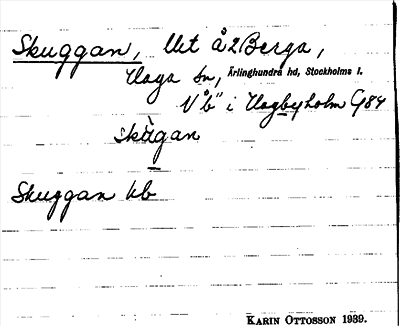 Skuggan, Ut å 2 Berga,
Haga sn, Ärlinghundra hd, Stockholms l.
V åb" i Hagbyholm G84
skùgan
Skuggan kb
KARIN OTTOSSON 1939.